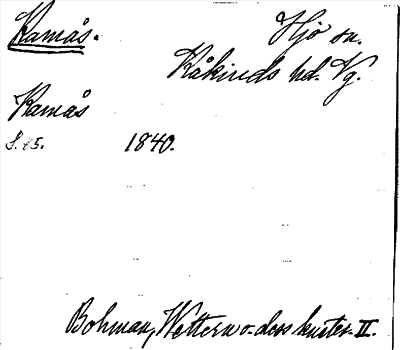 Kamås.
Hjo sn.
Kåkinds hd. Vg.
Kamås
S. 65. 1840.
Bohman, Wettern o. dess kuster II.